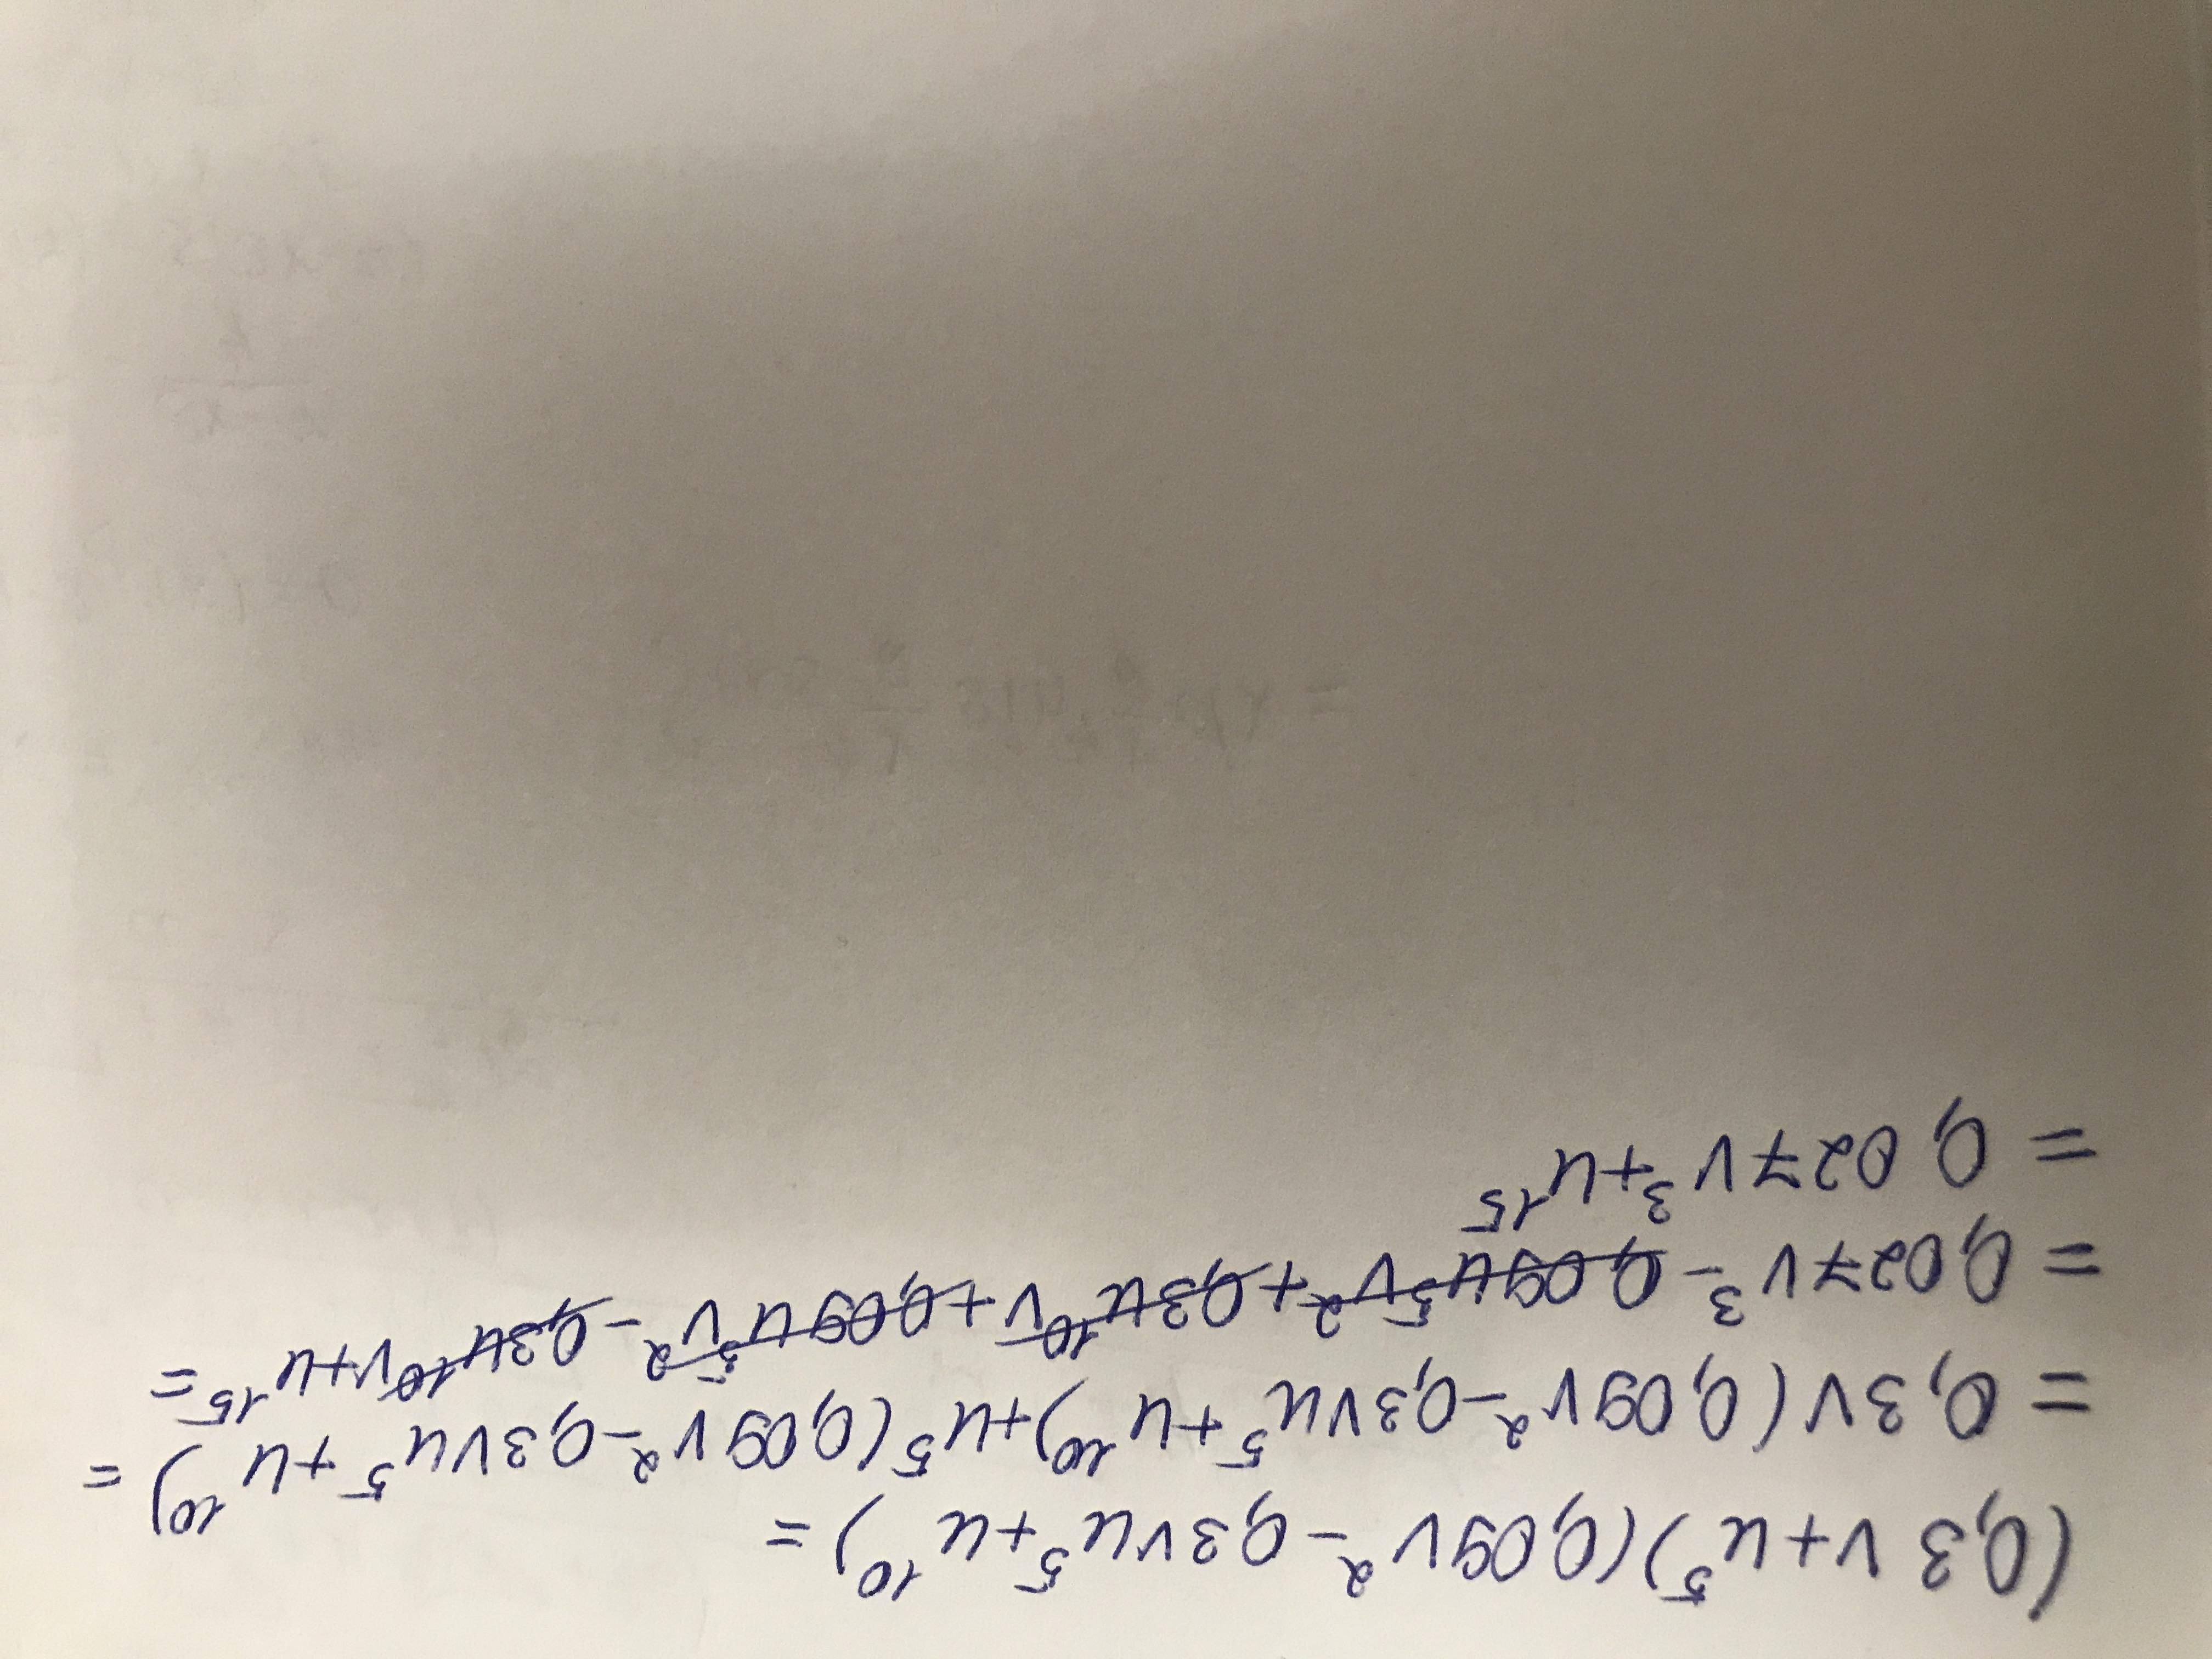 (0,3v+u⁵)(0,09v²-0,3vu⁵+u¹⁰)=
=0,3v(0,09v²-0,3vu⁵+u¹⁰)+u⁵(0,09v²-0,3vu⁵+u¹⁰)=
=0,027v³-0,09u⁵v²+0,3u¹⁰v+0,09u⁵v²-0,3u¹⁰v+u¹⁵=
=0,027v³+u¹⁵